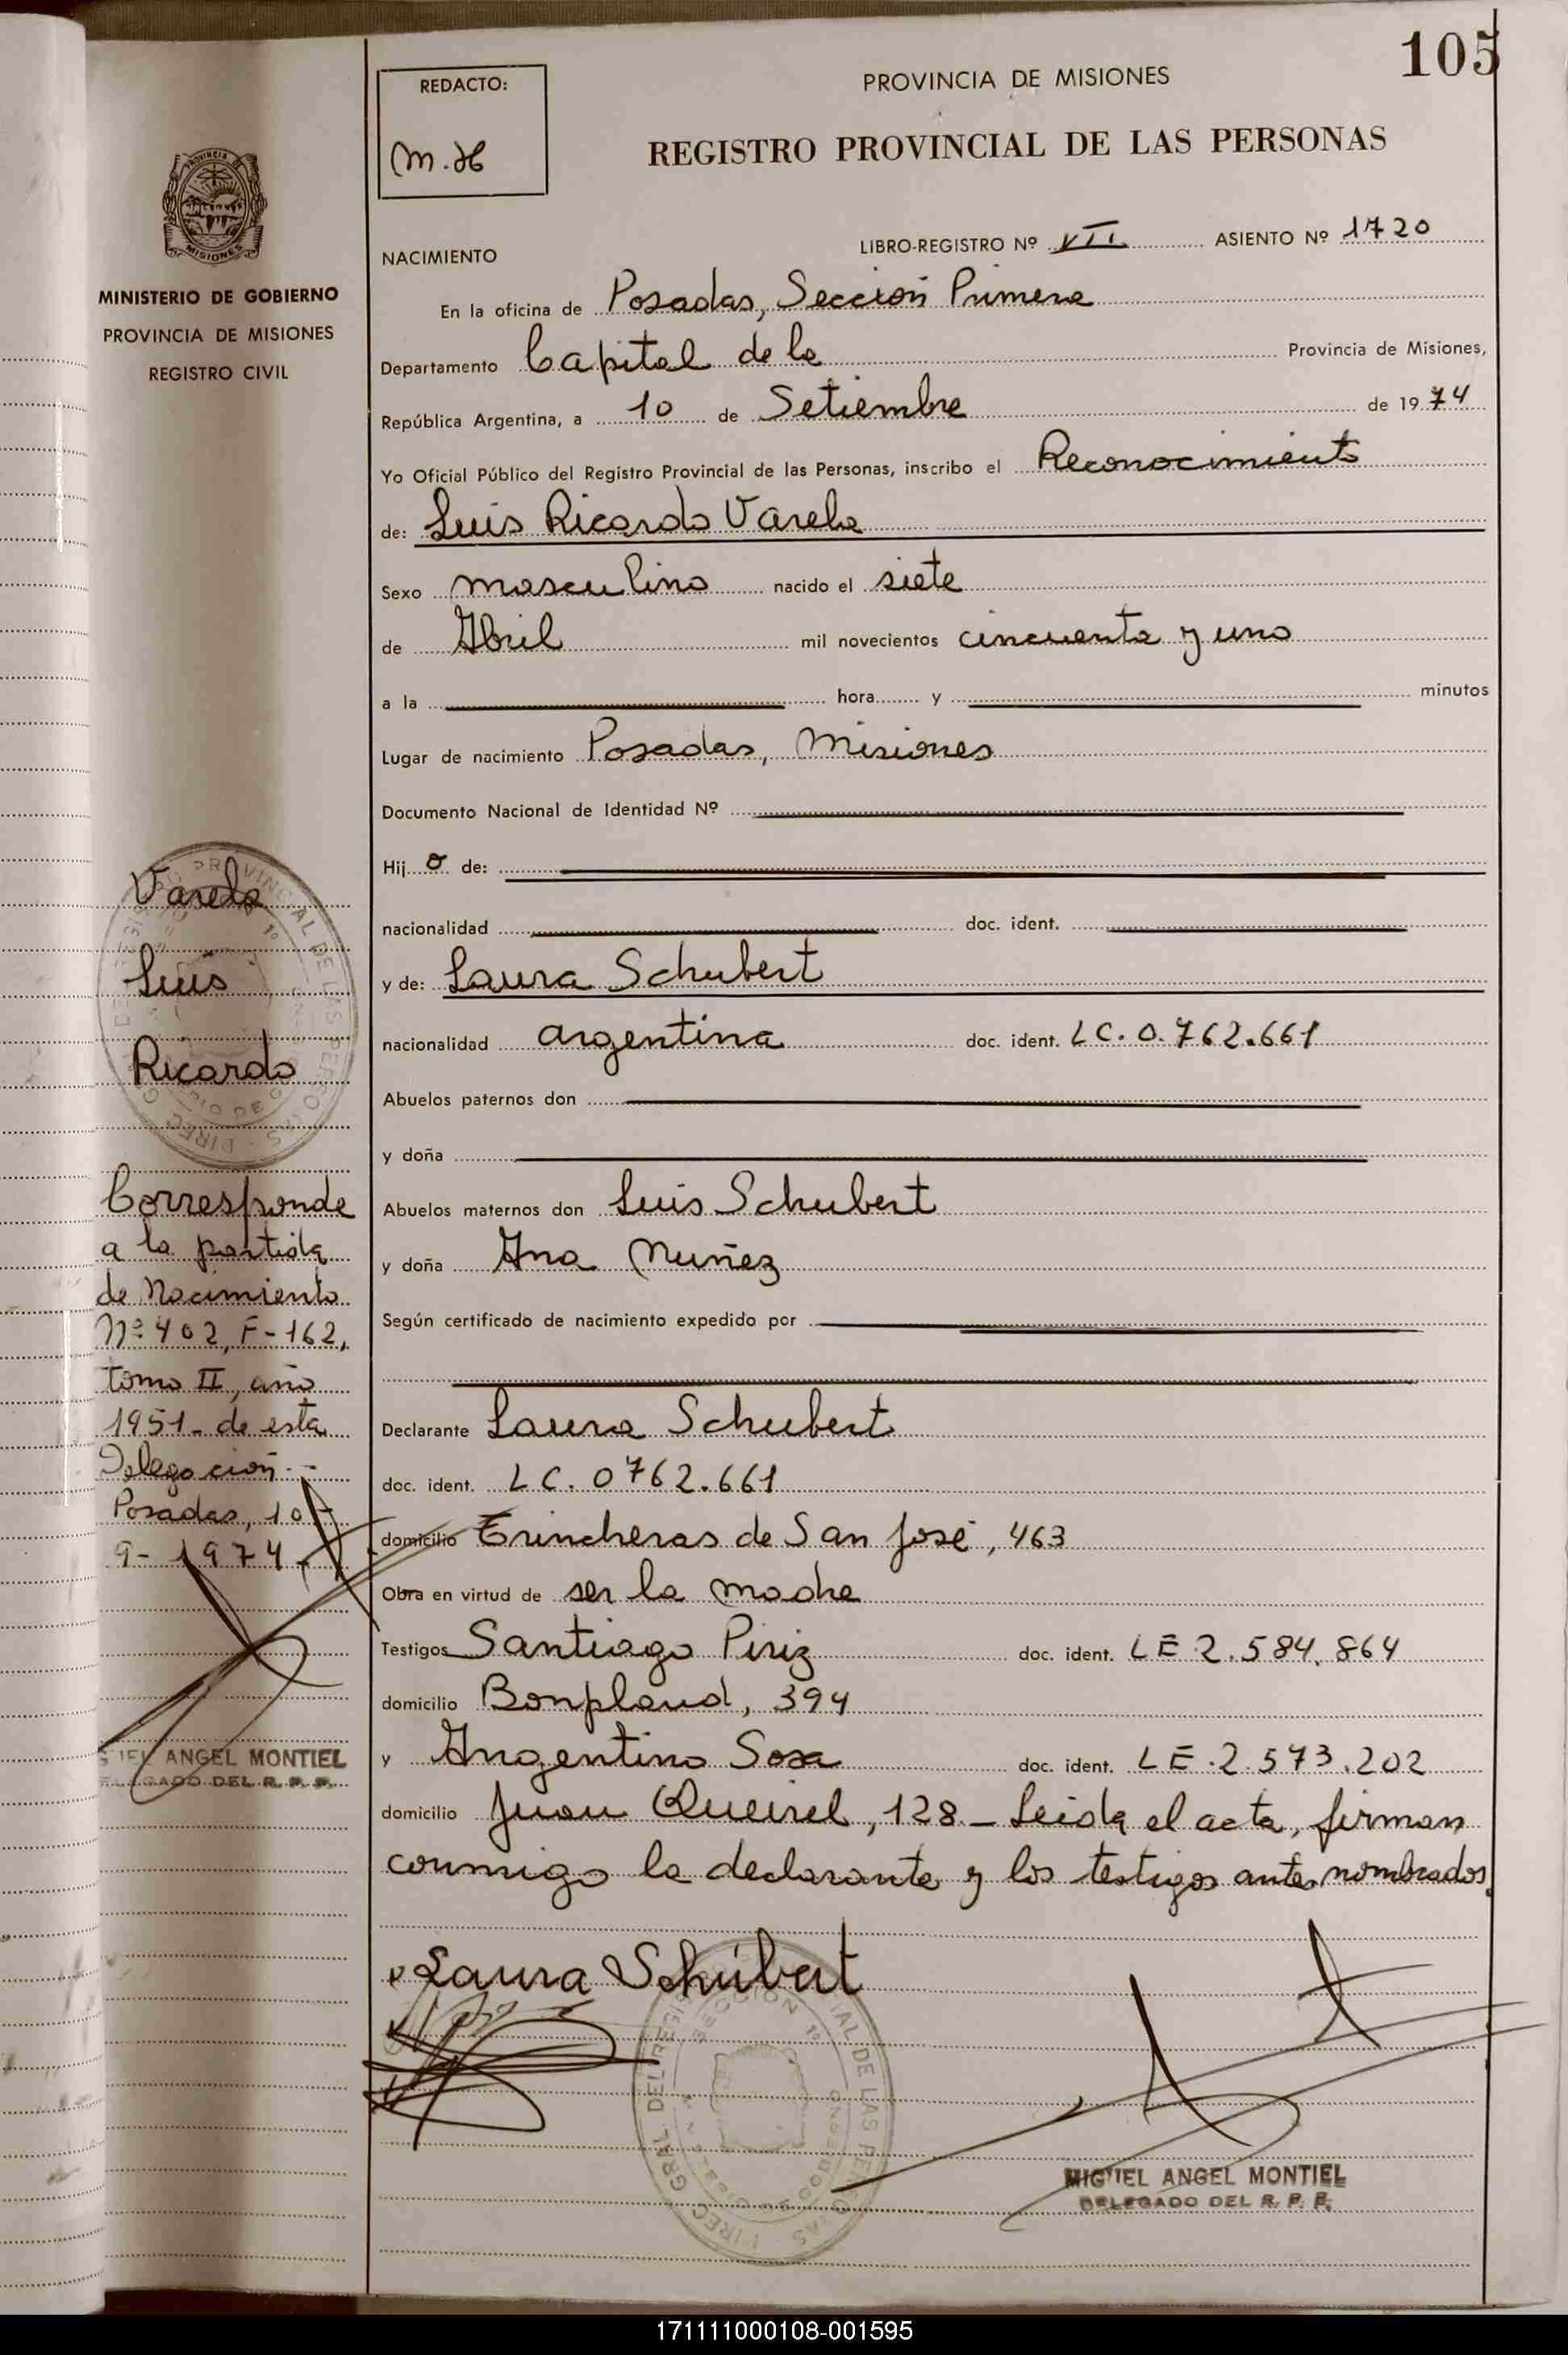 105
REDACTO:
M.H
PROVINCIA DE MISIONES
REGISTRO PROVINCIAL DE LAS PERSONAS
PROVINCIA DE
MISIONES
MINISTERIO DE GOBIERNO
PROVINCIA DE MISIONES
REGISTRO CIVIL
NACIMIENTO
LIBRO-REGISTRO Nº VII ASIENTO Nº 1720
En la oficina de Posadas, Sección Primera
Departamento Capital de la Provincia de Misiones,
República Argentina, a 10 de Setiembre de 1974
Yo Oficial Público del Registro Provincial de las Personas, inscribo el Reconocimiento
de: Luis Ricardo Varela
Sexo masculino nacido el siete
de Abril mil novecientos cincuenta y uno
a la hora y minutos
Lugar de nacimiento Posadas, Misiones
Documento Nacional de Identidad Nº
Hij o de:
nacionalidad doc. ident.
y de: Laura Schubert
nacionalidad argentina doc. ident. LC. 0.762.661
Abuelos paternos don
y doña
Abuelos maternos don Luis Schubert
y doña Ana Nuñez
Según certificado de nacimiento expedido por
Declarante Laura Schubert
doc. ident. LC. 0762.661
domicilio Trincheras de San José, 463
Obra en virtud de ser la madre
Testigos Santiago Piriz doc. ident. LE 2.584.864
domicilio Bonpland, 394
y Argentino Sosa doc. ident. LE.2.573.202
domicilio Juan Queirel, 128_ Leida el acta, firman
conmigo la declarante y los testigos antes nombrados.
Laura Schúbert
MIGUEL ANGEL MONTIEL
DELEGADO DEL R. P. P.
Varela
Luis
Ricardo
Corresponde
a la partida
de Nacimiento
Nº 402, F-162,
tomo II, año
1951- de esta
Delegación.-
Posadas, 10-
9- 1974-
ANGEL MONTIEL
DEL R. P. P.
171111000108-001595